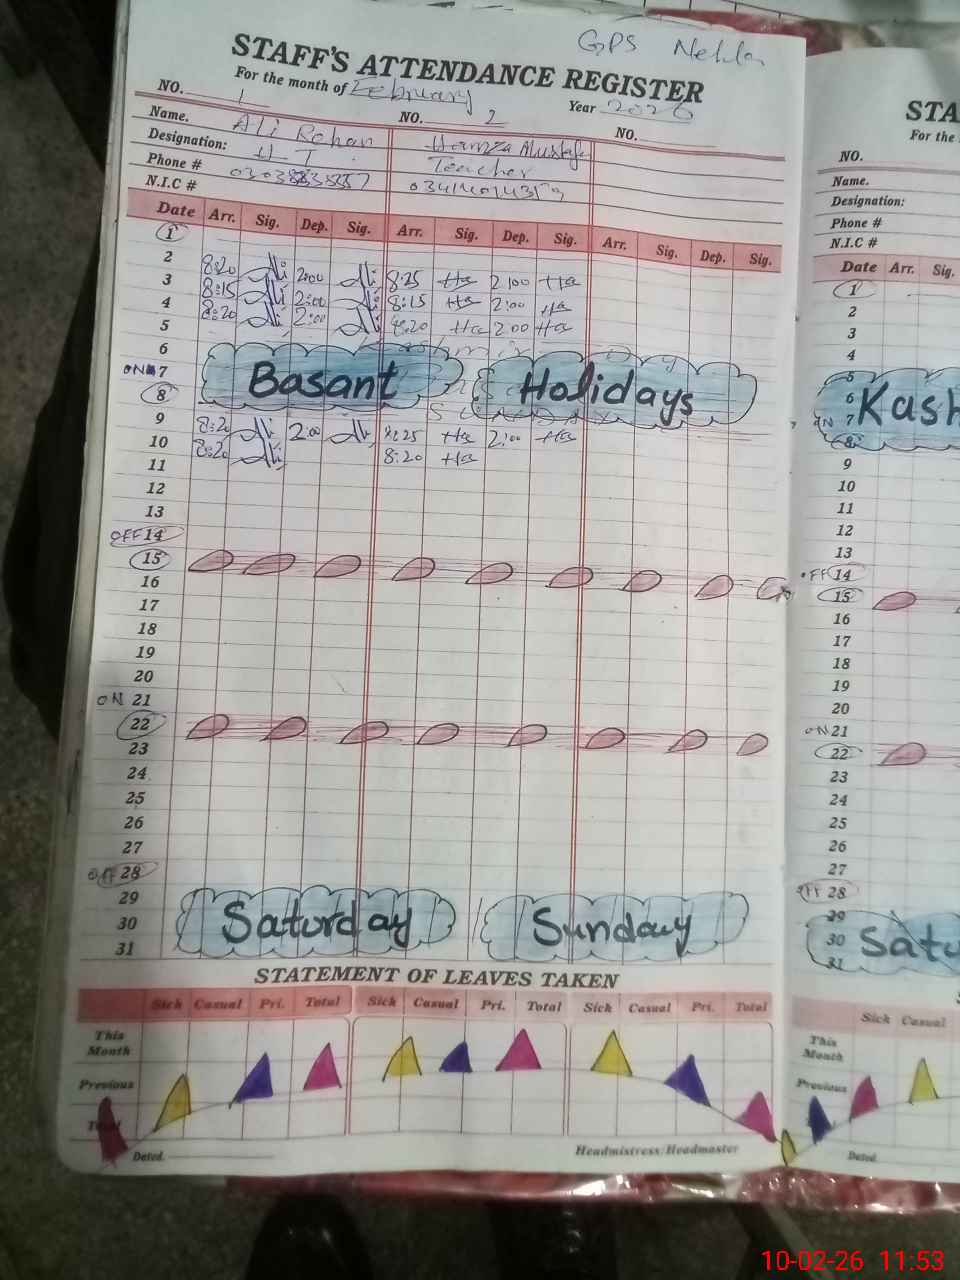 GPS
STAFF'S ATTENDANCE REGISTER
For the month of February Year 2026
NO. 1 NO. 2 NO.
Name. Ali Rehan Hamza Mustafa
Designation: Teacher
Phone #
N.I.C #
Date Arr. Sig. Dep. Sig. Arr. Sig. Dep. Sig. Arr. Sig. Dep. Sig.
1
2 8:20 2:00 8:25 Ha 2:00 Ha
3 8:15 2:00 8:15 Ha 2:00 Ha
4 8:20 2:00 8:20 Ha 2:00 Ha
5
6
ON 7 Basant Holidays
8
9 8:20 2:00 8:25 Ha 2:00 Ha
10 8:20 8:20 Ha
11
12
13
OFF 14
15
16
17
18
19
20
ON 21
22
23
24
25
26
27
OFF 28
29
30 Saturday Sunday
31
STATEMENT OF LEAVES TAKEN
Sick Casual Pri. Total Sick Casual Pri. Total Sick Casual Pri. Total
This Month
Previous
Total
Dated. Headmistress/Headmaster
STA
For the
NO.
Name.
Designation:
Phone #
N.I.C #
Date Arr. Sig.
1
2
3
4
5
6 Kash
ON 7
8
9
10
11
12
13
OFF 14
15
16
17
18
19
20
ON 21
22
23
24
25
26
27
OFF 28
29
30 Satu
31
Sick Casual
This Month
Previous
Dated.
10-02-26 11:53